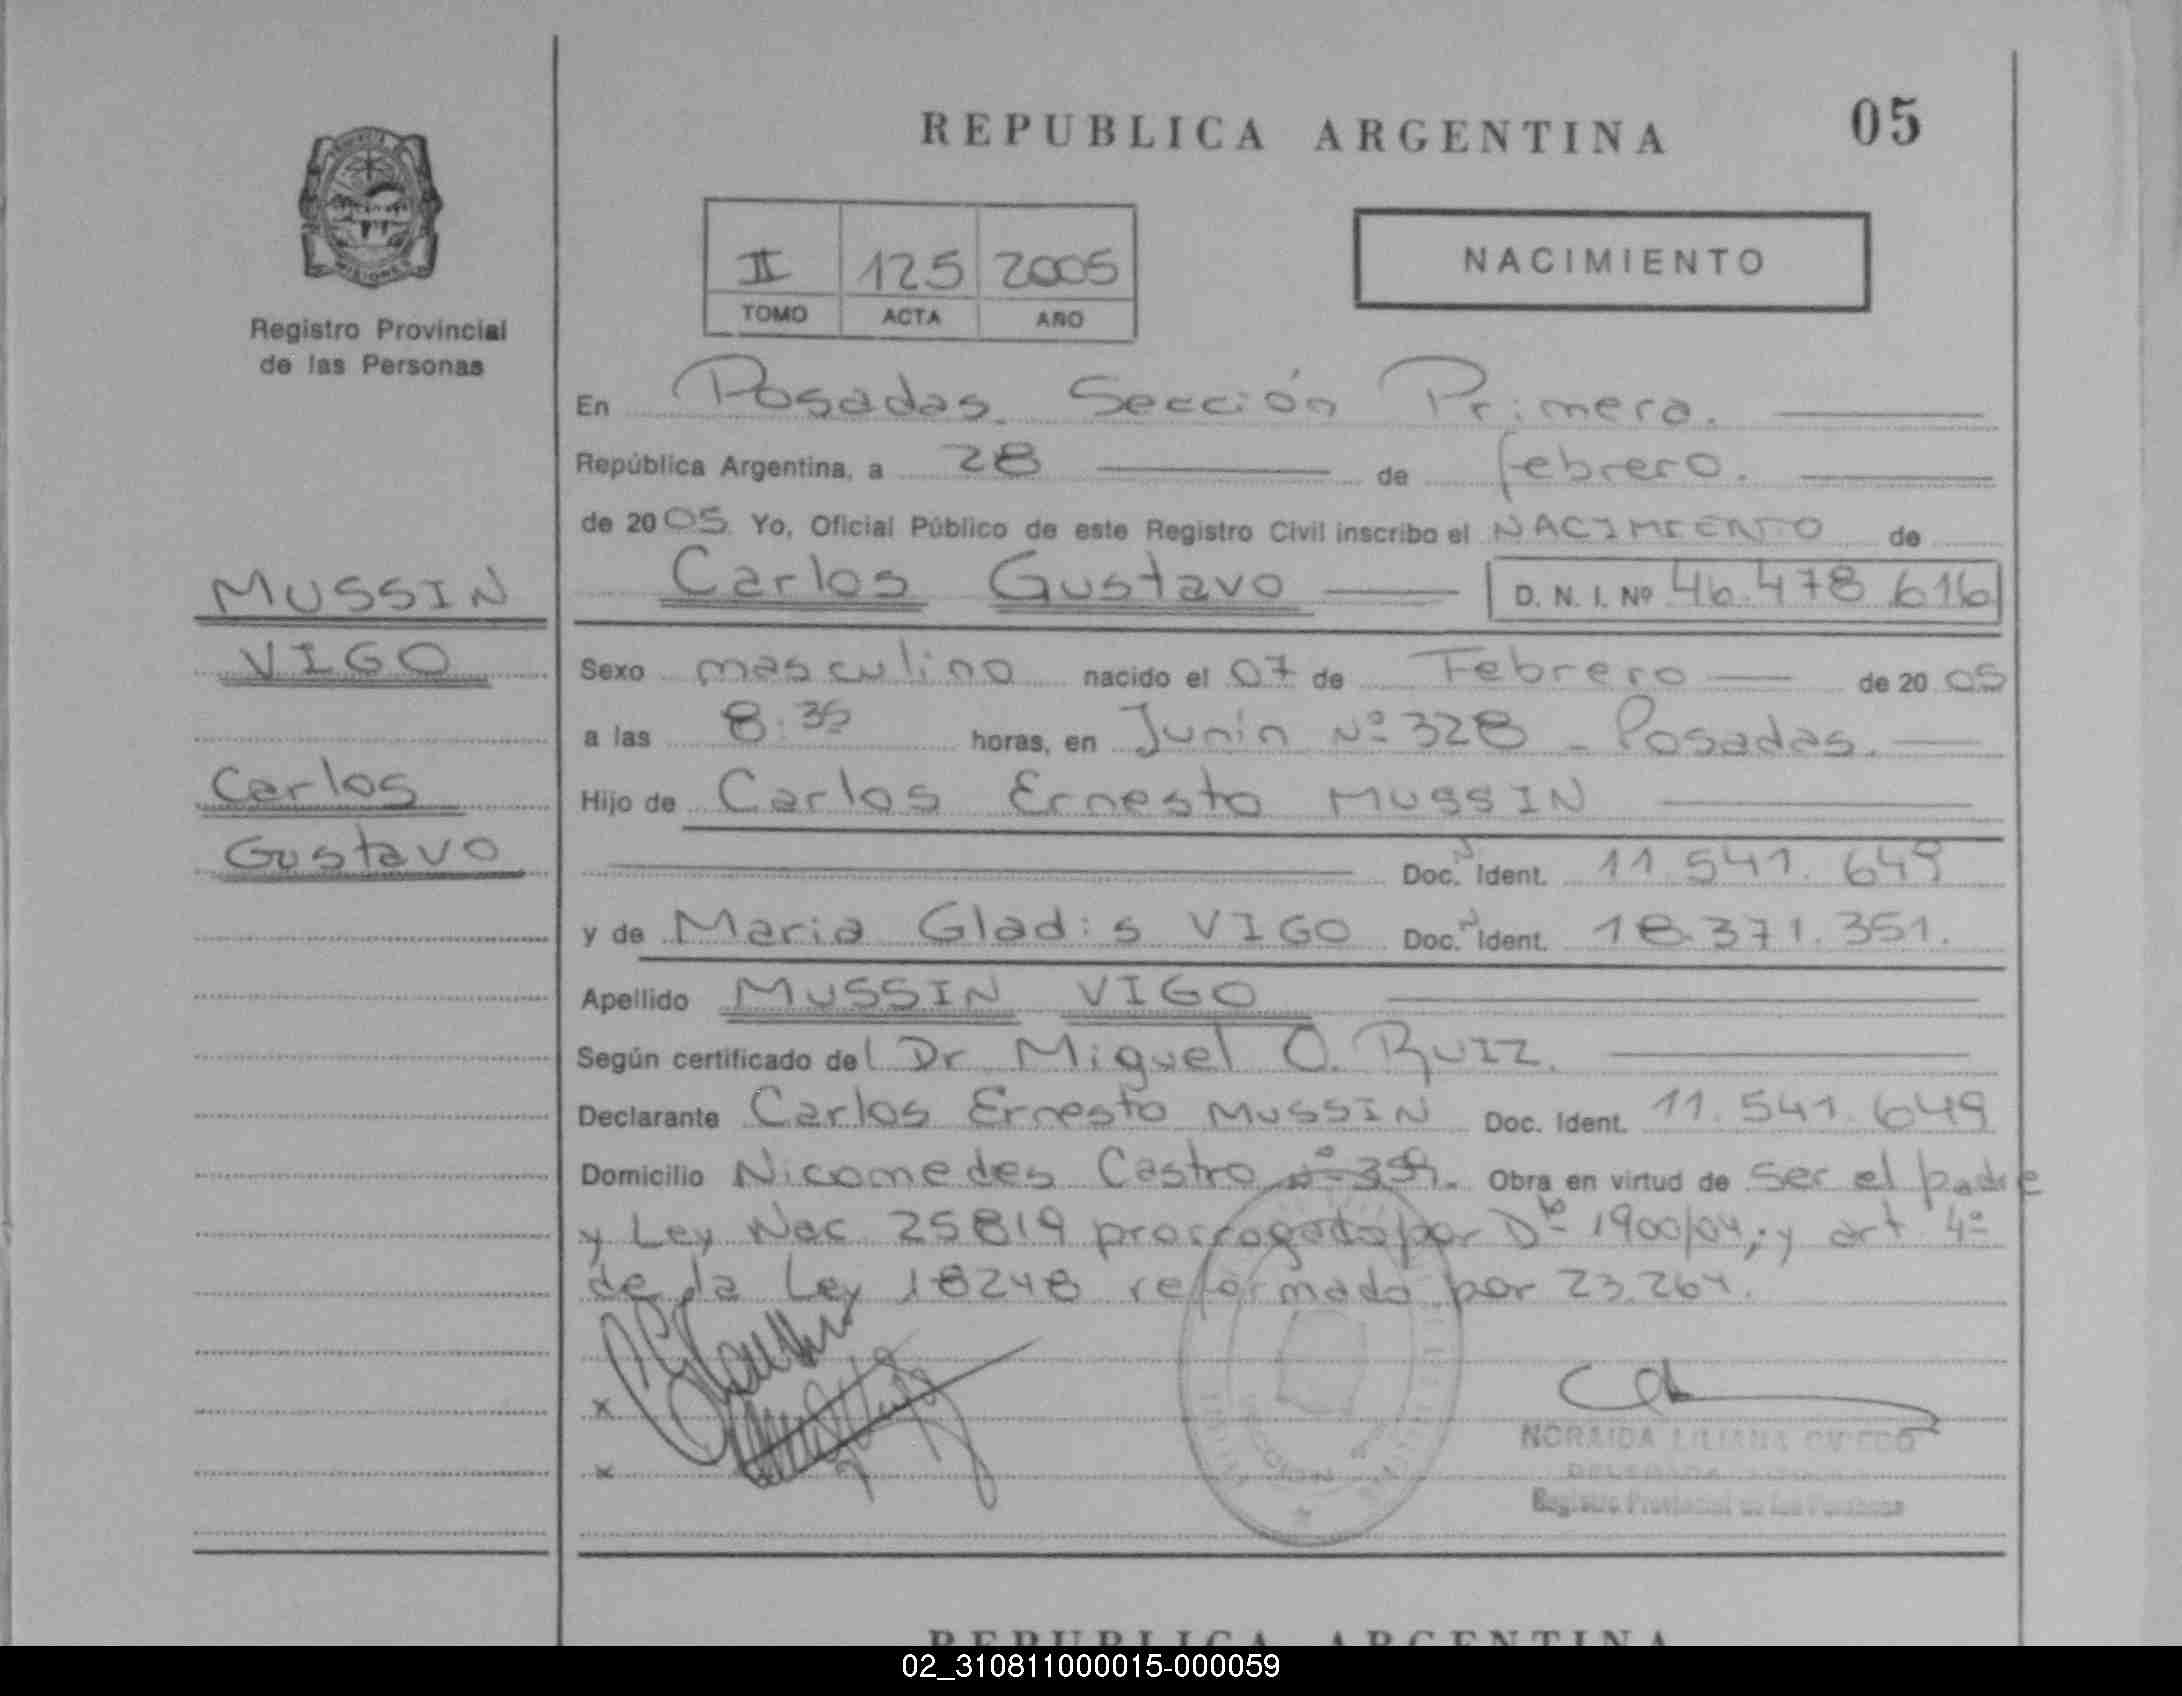 REPUBLICA ARGENTINA
05
Registro Provincial
de las Personas
II 125 2005
TOMO ACTA AÑO
NACIMIENTO
En Posadas Sección Primera.
República Argentina, a 28 de febrero.
de 2005 Yo, Oficial Público de este Registro Civil inscribo el NACIMIENTO de
Carlos Gustavo D. N. I. Nº 46.478.616
MUSSIN
VIGO
Carlos
Gustavo
Sexo masculino nacido el 07 de Febrero de 2005
a las 8.35 horas, en Junín Nº 328 - Posadas.
Hijo de Carlos Ernesto MUSSIN
Doc. Ident. 11.541.649
y de Maria Gladis VIGO Doc. Ident. 18.371.351.
Apellido MUSSIN VIGO
Según certificado del Dr. Miguel O. RUIZ.
Declarante Carlos Ernesto MUSSIN Doc. Ident. 11.541.649
Domicilio Nicomedes Castro Obra en virtud de ser el padre
y Ley Nac 25819 prorrogado por Dto 1900/04, y art 4º
de la Ley 18248 reformado por 23.264.
x
x
NORAIDA LILIANA OVIEDO
Registro Provincial de las Personas
REPUBLICA ARGENTINA
02_310811000015-000059